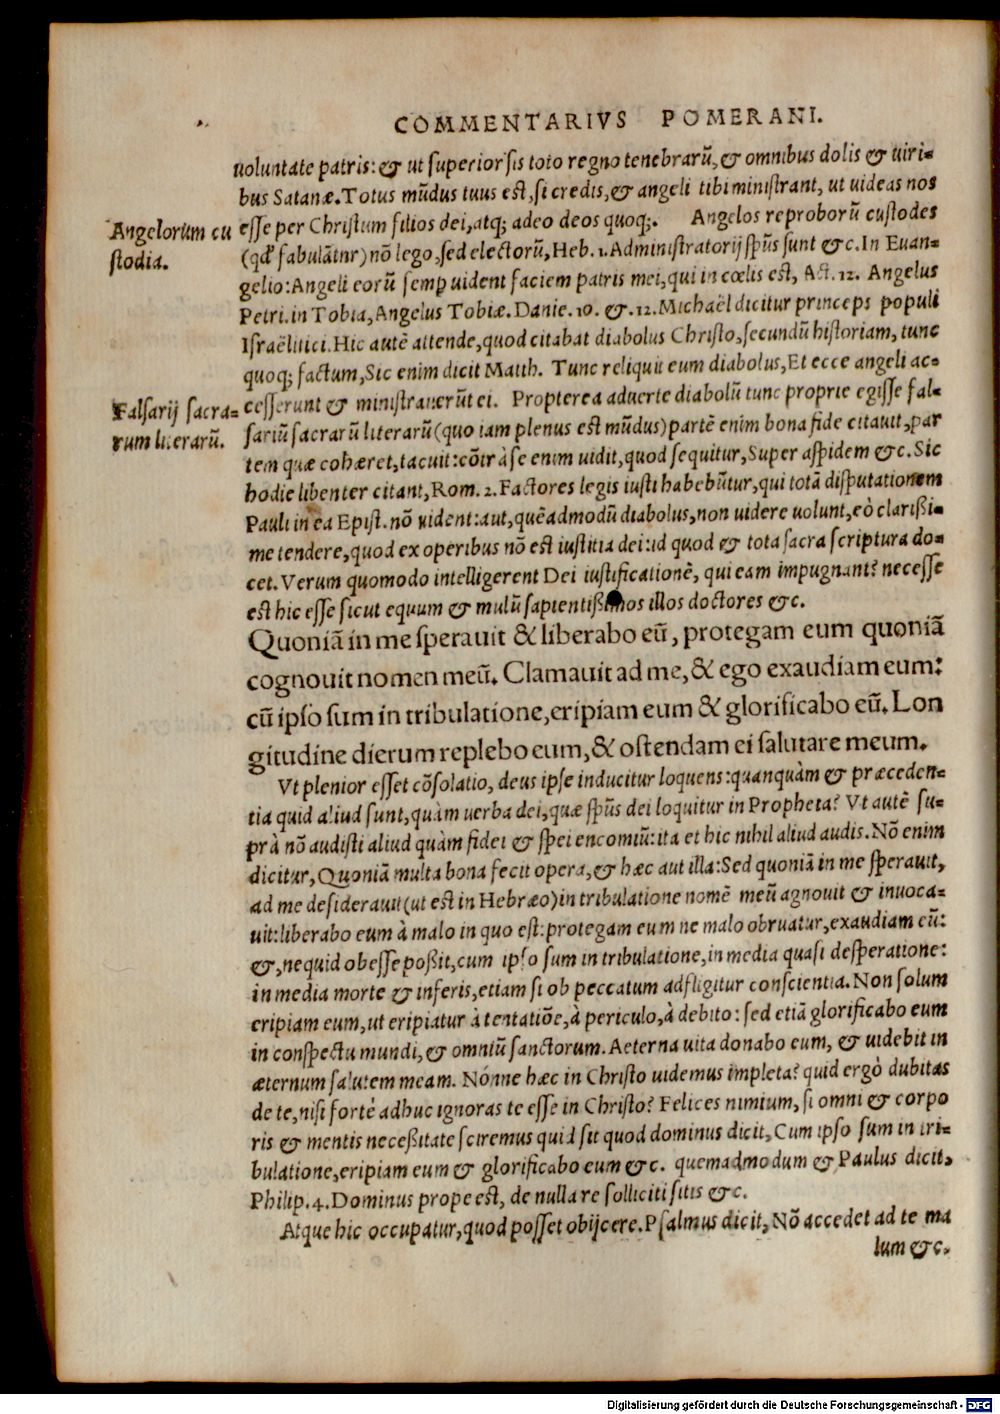 COMMENTARIVS POMERANI.
uoluntate patris: & ut superior sis toto regno tenebrarū, & omnibus dolis & uiri-
bus Satanæ. Totus mūdus tuus est, si credis, & angeli tibi ministrant, ut uideas nos
esse per Christum filios dei, atq; adeo deos quoq;. Angelos reproborū custodes
Angelorum cu
stodia.
(qđ fabulātur) nō lego, sed electorū, Heb. 1. Administratorij spūs sunt &c. In Euan-
gelio: Angeli eorū semp uident faciem patris mei, qui in cœlis est, Act. 12. Angelus
Petri. in Tobia, Angelus Tobiæ. Danie. 10. &. 12. Michaël dicitur princeps populi
Israëlitici. Hic autē attende, quod citabat diabolus Christo, secundū historiam, tunc
quoq; factum, Sic enim dicit Matth. Tunc reliquit eum diabolus, Et ecce angeli ac-
cesserunt & ministrauerūt ei. Propterea aduerte diabolū tunc proprie egisse fal-
Falsarij sacra-
rum literarū.
sariū sacrarū literarū (quo iam plenus est mūdus) partē enim bona fide citauit, par
tem quæ cohæret, tacuit: cōtrà se enim uidit, quod sequitur, Super aspidem &c. Sic
hodie libenter citant, Rom. 2. Factores legis iusti habebūtur, qui totā disputationem
Pauli in ea Epist. nō uident: aut, quēadmodū diabolus, non uidere uolunt, eò clarißi-
me tendere, quod ex operibus nō est iustitia dei: id quod & tota sacra scriptura do-
cet. Verum quomodo intelligerent Dei iustificationē, qui eam impugnant? necesse
est hic esse sicut equum & mulū sapientißimos illos doctores &c.
Quoniā in me sperauit & liberabo eū, protegam eum quoniā
cognouit nomen meū. Clamauit ad me, & ego exaudiam eum:
cū ipso sum in tribulatione, eripiam eum & glorificabo eū. Lon
gitudine dierum replebo eum, & ostendam ei salutare meum.
Vt plenior esset cōsolatio, deus ipse inducitur loquens: quanquàm & præceden-
tia quid aliud sunt, quàm uerba dei, quæ spūs dei loquitur in Propheta? Vt autē su-
prà nō audisti aliud quàm fidei & spei encomiū: ita et hic nihil aliud audis. Nō enim
dicitur, Quoniā multa bona fecit opera, & hæc aut illa: Sed quoniā in me sperauit,
ad me desiderauit (ut est in Hebræo) in tribulatione nomē meū agnouit & inuoca-
uit: liberabo eum à malo in quo est: protegam eum ne malo obruatur, exaudiam eū:
&, ne quid obesse poßit, cum ipso sum in tribulatione, in media quasi desperatione:
in media morte & inferis, etiam si ob peccatum adfligitur conscientia. Non solum
eripiam eum, ut eripiatur à tentatiōe, à periculo, à debito: sed etiā glorificabo eum
in conspectu mundi, & omniū sanctorum. Aeterna uita donabo eum, & uidebit in
æternum salutem meam. Nónne hæc in Christo uidemus impleta? quid ergò dubitas
de te, nisi fortè adhuc ignoras te esse in Christo? Felices nimium, si omni & corpo
ris & mentis neceßitate sciremus quid sit quod dominus dicit, Cum ipso sum in tri-
bulatione, eripiam eum & glorificabo eum &c. quemadmodum & Paulus dicit,
Philip. 4. Dominus prope est, de nulla re solliciti sitis &c.
Atque hic occupatur, quod posset obijcere. Psalmus dicit, Nō accedet ad te ma
lum &c.
Digitalisierung gefördert durch die Deutsche Forschungsgemeinschaft - DFG